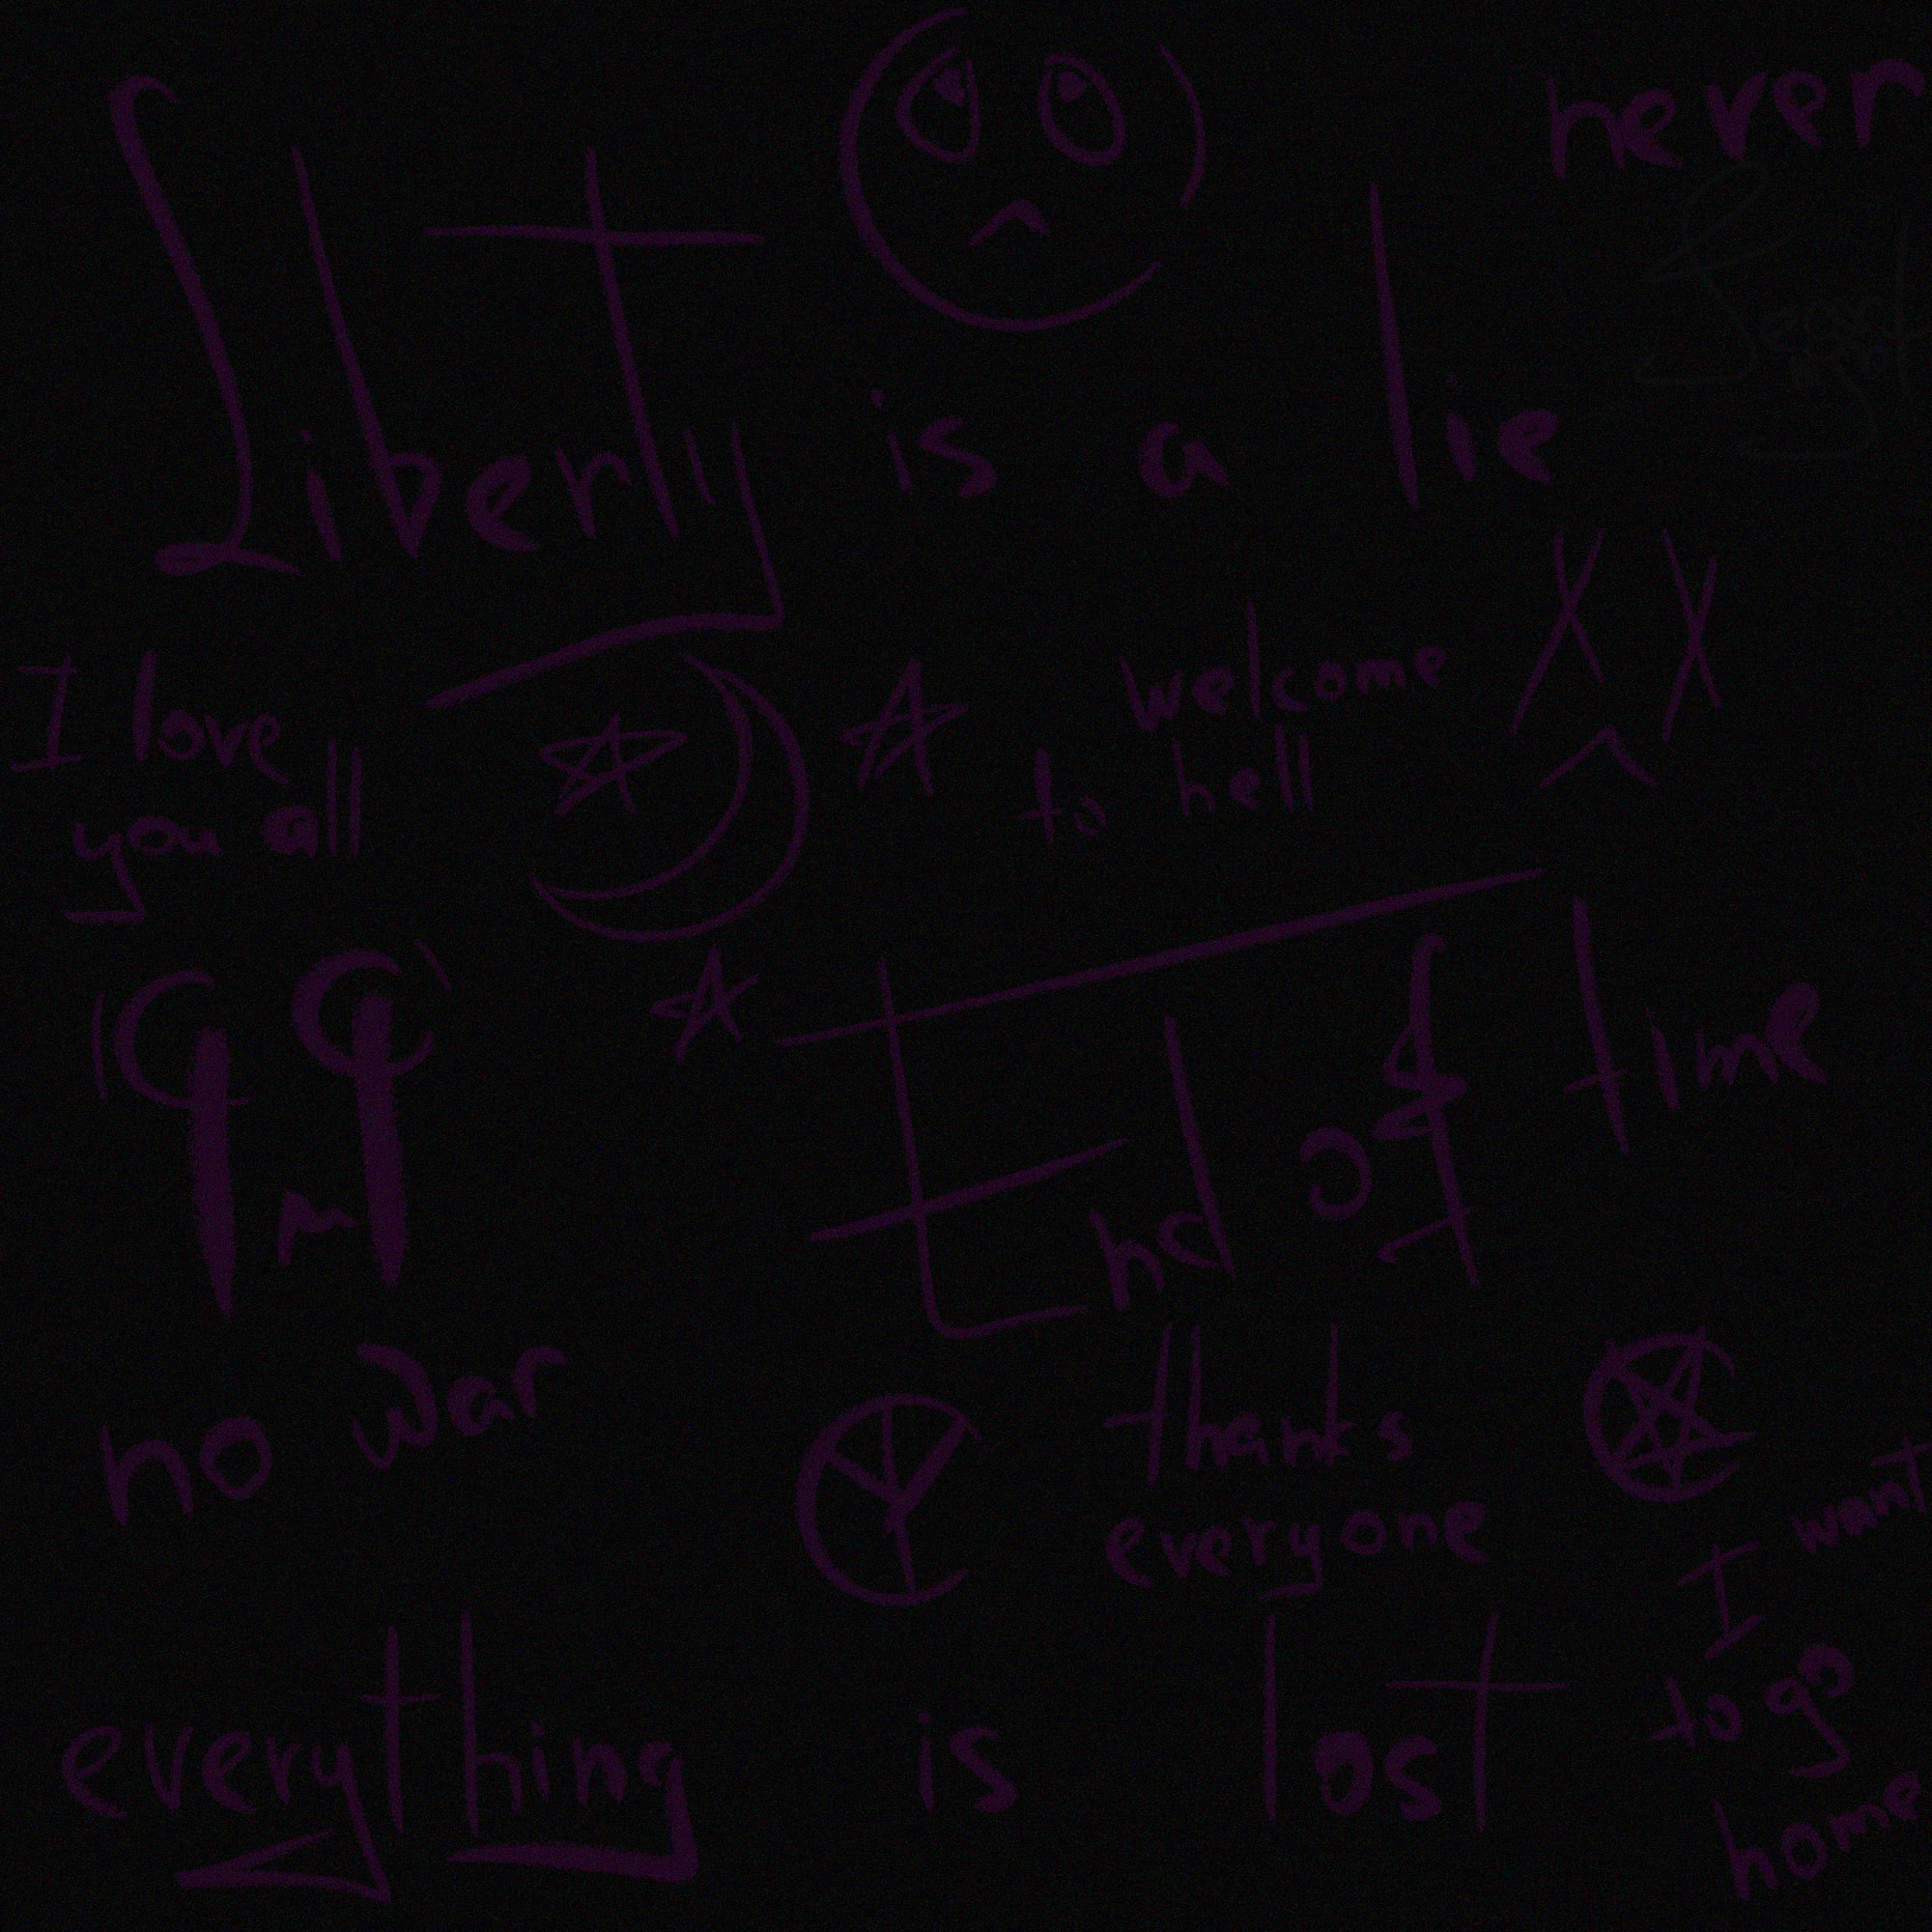 never
Liberty is a lie
I love
you all
welcome
to hell
End of time
no war
thanks
everyone
I want
to go
home
everything is lost